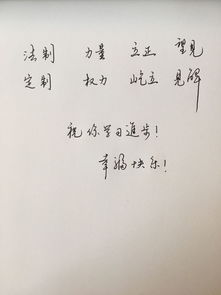 法制 力量 立正 望见
定制 权力 屹立 见碑
祝你学习進步!
幸福快乐!